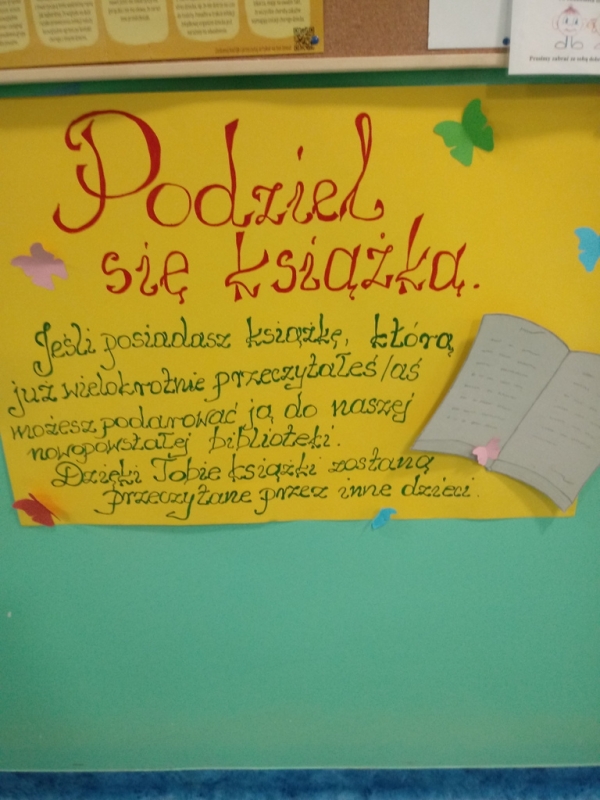 Podziel
się książką.
Jeśli posiadasz książkę, którą
już wielokrotnie przeczytałeś/aś
możesz podarować ją do naszej
nowopowstałej biblioteki.
Dzięki Tobie książki zostaną
przeczytane przez inne dzieci.